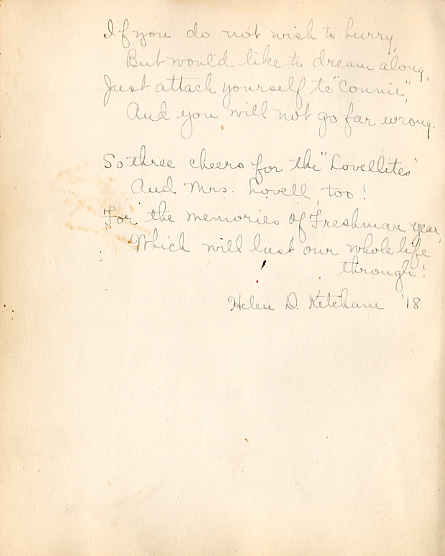 If you do not wish to hurry,
But would like to dream along,
Just attach yourself to "Connie",
And you will not go far wrong.
So three cheers for the "Lovellites"
And Mrs. Lovell, too!
For the memories of Freshman year,
Which will last our whole life
through!
Helen D. Ketcham '18